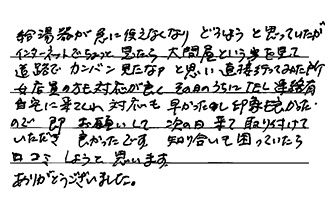 給湯器が急に使えなくなり どうしようと思っていたが
インターネットでちょっと見たら 大問屋という字を見て
道路で カンバン見たな?と思い 直接行ってみた所
女店員の方も対応が良く その日のうちにTELし連絡有
自宅に来てくれ 対応も 早かったし 印象も良かった
ので 即 お願いして 次の日 来て 取り付けて
いただき 良かったです 知り合いも 困っていたら
口コミ しようと 思います
ありがとうございました。